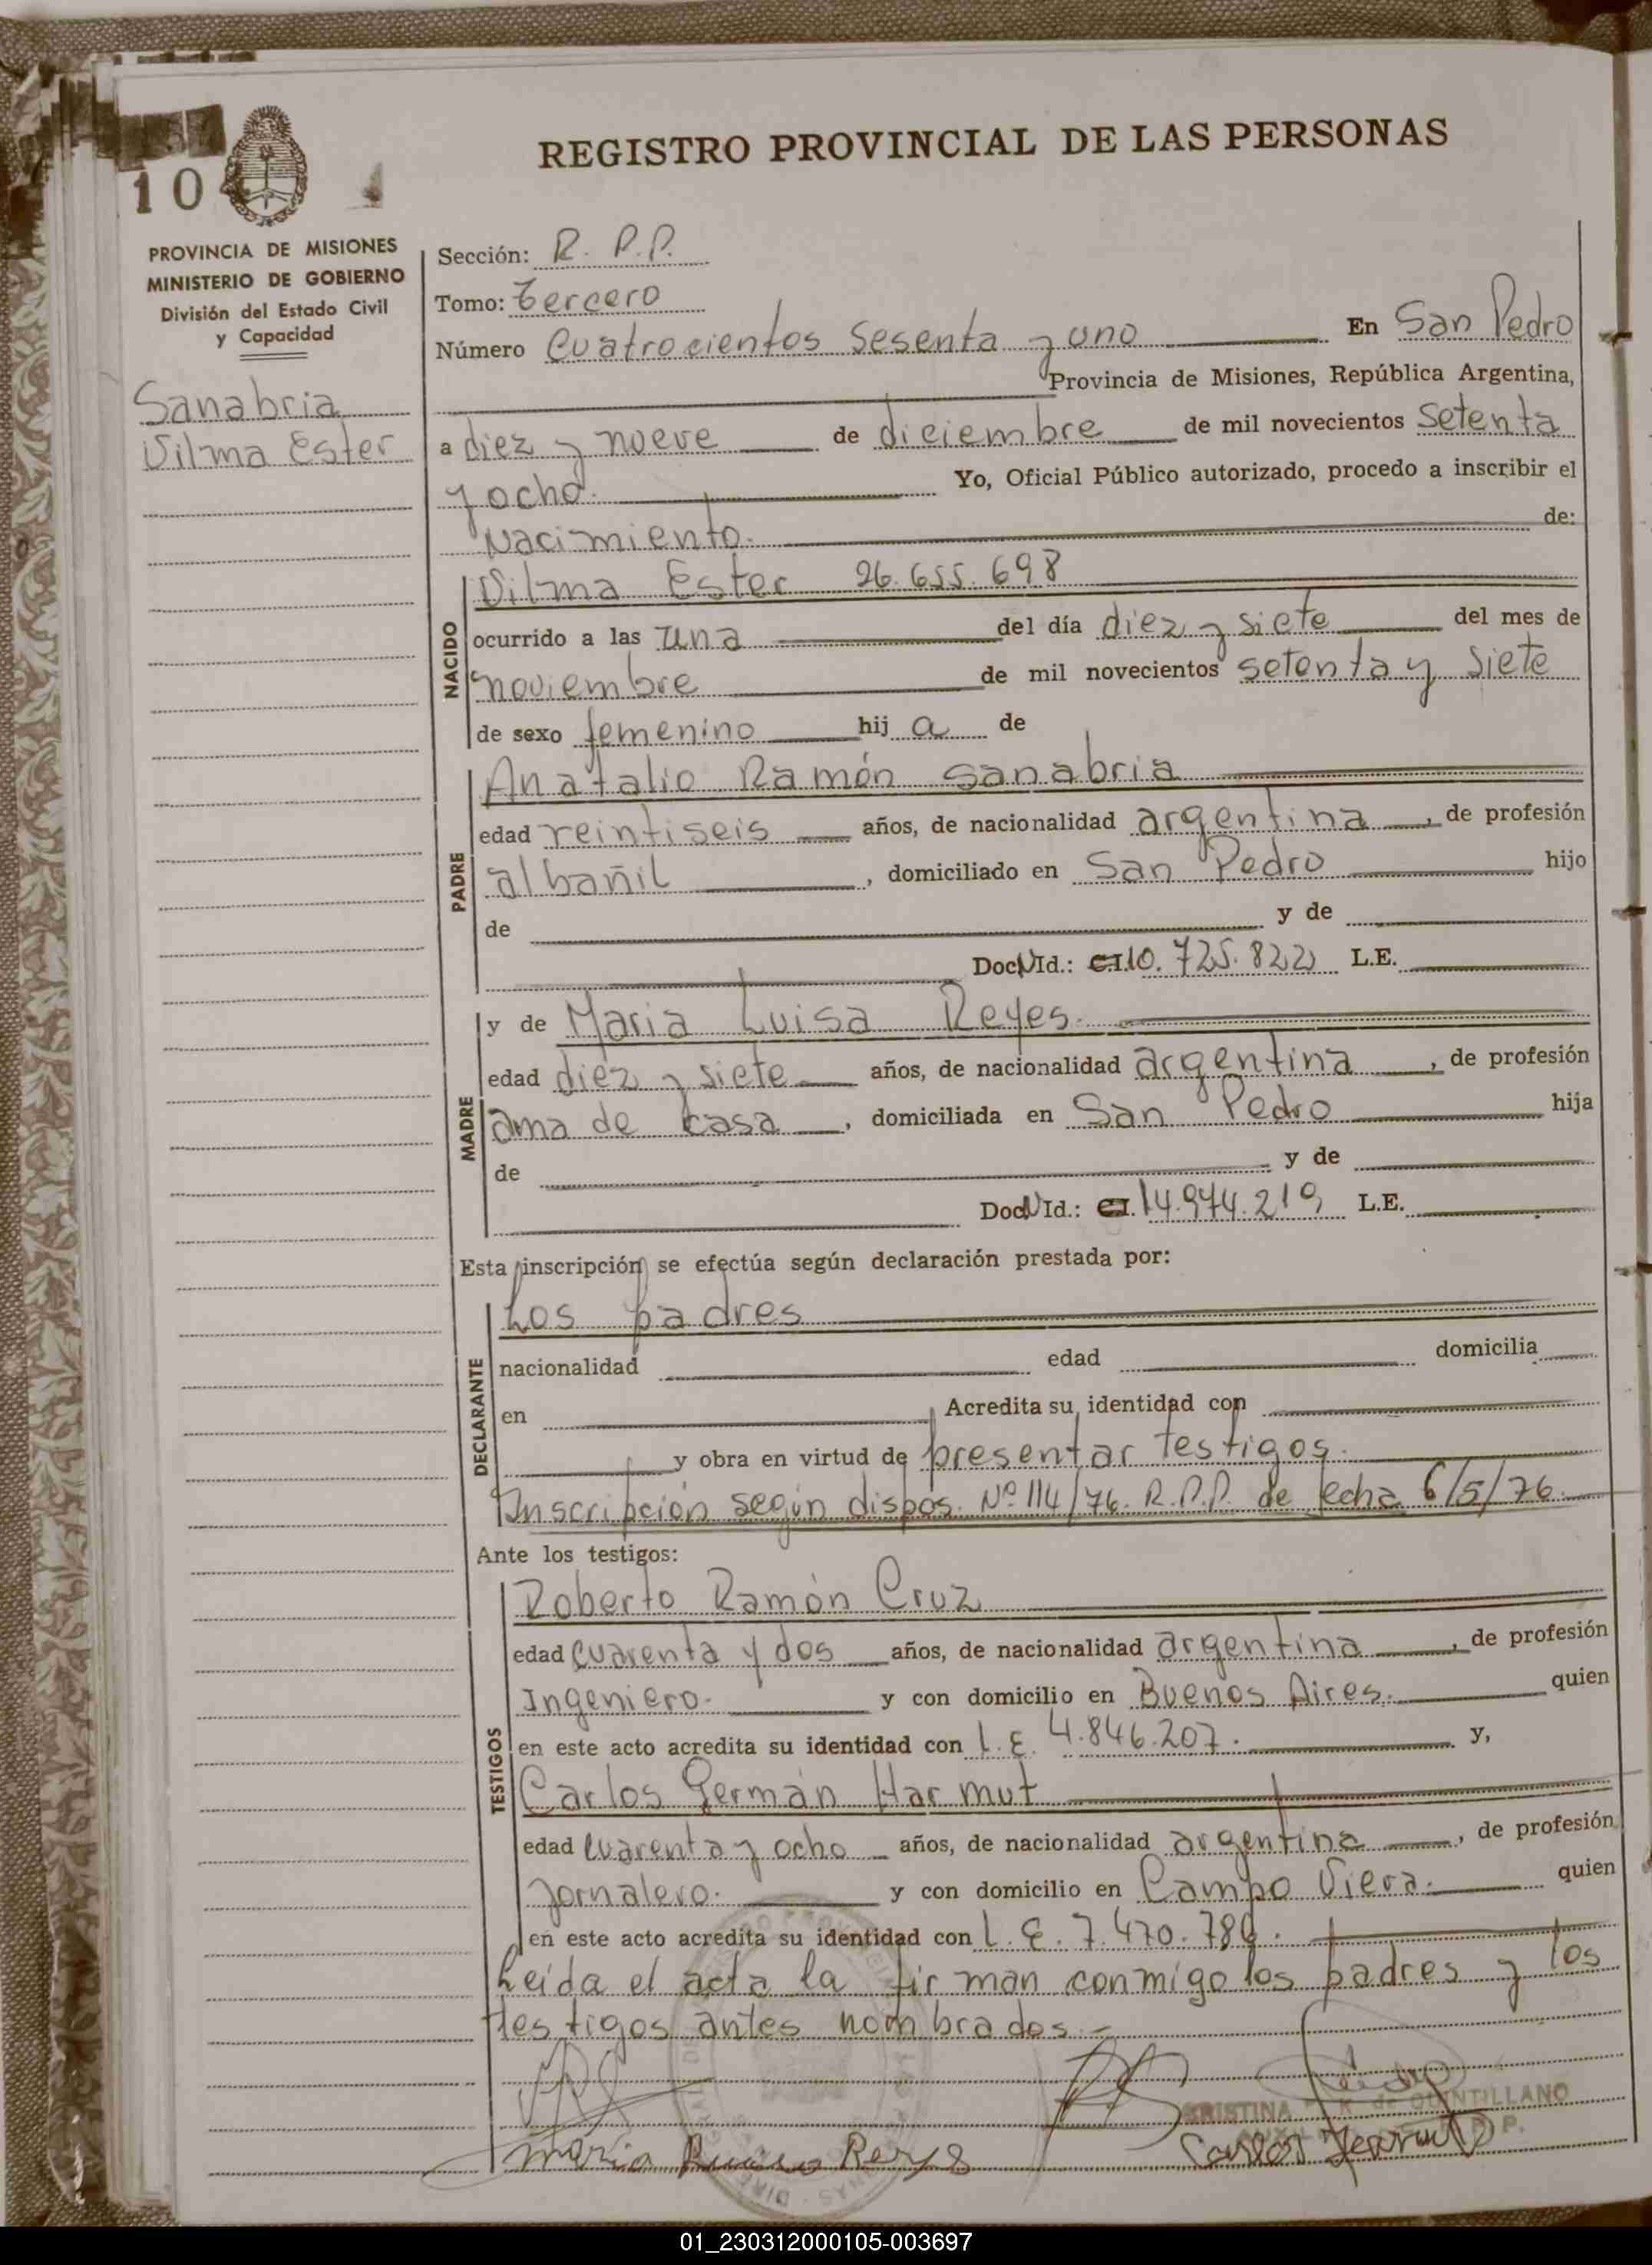 REGISTRO PROVINCIAL DE LAS PERSONAS
10
PROVINCIA DE MISIONES
MINISTERIO DE GOBIERNO
División del Estado Civil
y Capacidad
Sanabria
Vilma Ester
Sección: R. P.P.
Tomo: Tercero
Número Cuatrocientos Sesenta y uno En San Pedro
Provincia de Misiones, República Argentina,
a diez y nueve de diciembre de mil novecientos setenta
y ocho. Yo, Oficial Público autorizado, procedo a inscribir el
Nacimiento. de:
NACIDO
Vilma Ester 26.655.698
ocurrido a las una del día diez y siete del mes de
noviembre de mil novecientos setenta y siete
de sexo femenino hij a de
PADRE
Anatalio Ramón Sanabria
edad veintiseis años, de nacionalidad argentina, de profesión
albañil, domiciliado en San Pedro hijo
de y de
Doc. Id.: C.I. 10.725.822 L.E.
MADRE
y de Maria Luisa Reyes.
edad diez y siete años, de nacionalidad argentina, de profesión
ama de casa, domiciliada en San Pedro hija
de y de
Doc. Id.: C.I. 14.974.219 L.E.
Esta inscripción se efectúa según declaración prestada por:
DECLARANTE
Los padres
nacionalidad edad domicilia
en Acredita su identidad con
y obra en virtud de presentar testigos.
Inscripción según dispos. Nº 114/76. R.P.P. de fecha 6/5/76.
Ante los testigos:
TESTIGOS
Roberto Ramón Cruz
edad cuarenta y dos años, de nacionalidad argentina, de profesión
Ingeniero. y con domicilio en Buenos Aires. quien
en este acto acredita su identidad con L.E. 4.846.207. y,
Carlos Germán Harmut
edad cuarenta y ocho años, de nacionalidad argentina, de profesión
Jornalero. y con domicilio en Campo Viera. quien
en este acto acredita su identidad con L.E. 7.470.786.
Leída el acta la firman conmigo los padres y los
testigos antes nombrados.-
QUINTILLANO
Maria Reyes
Carlos
01_230312000105-003697